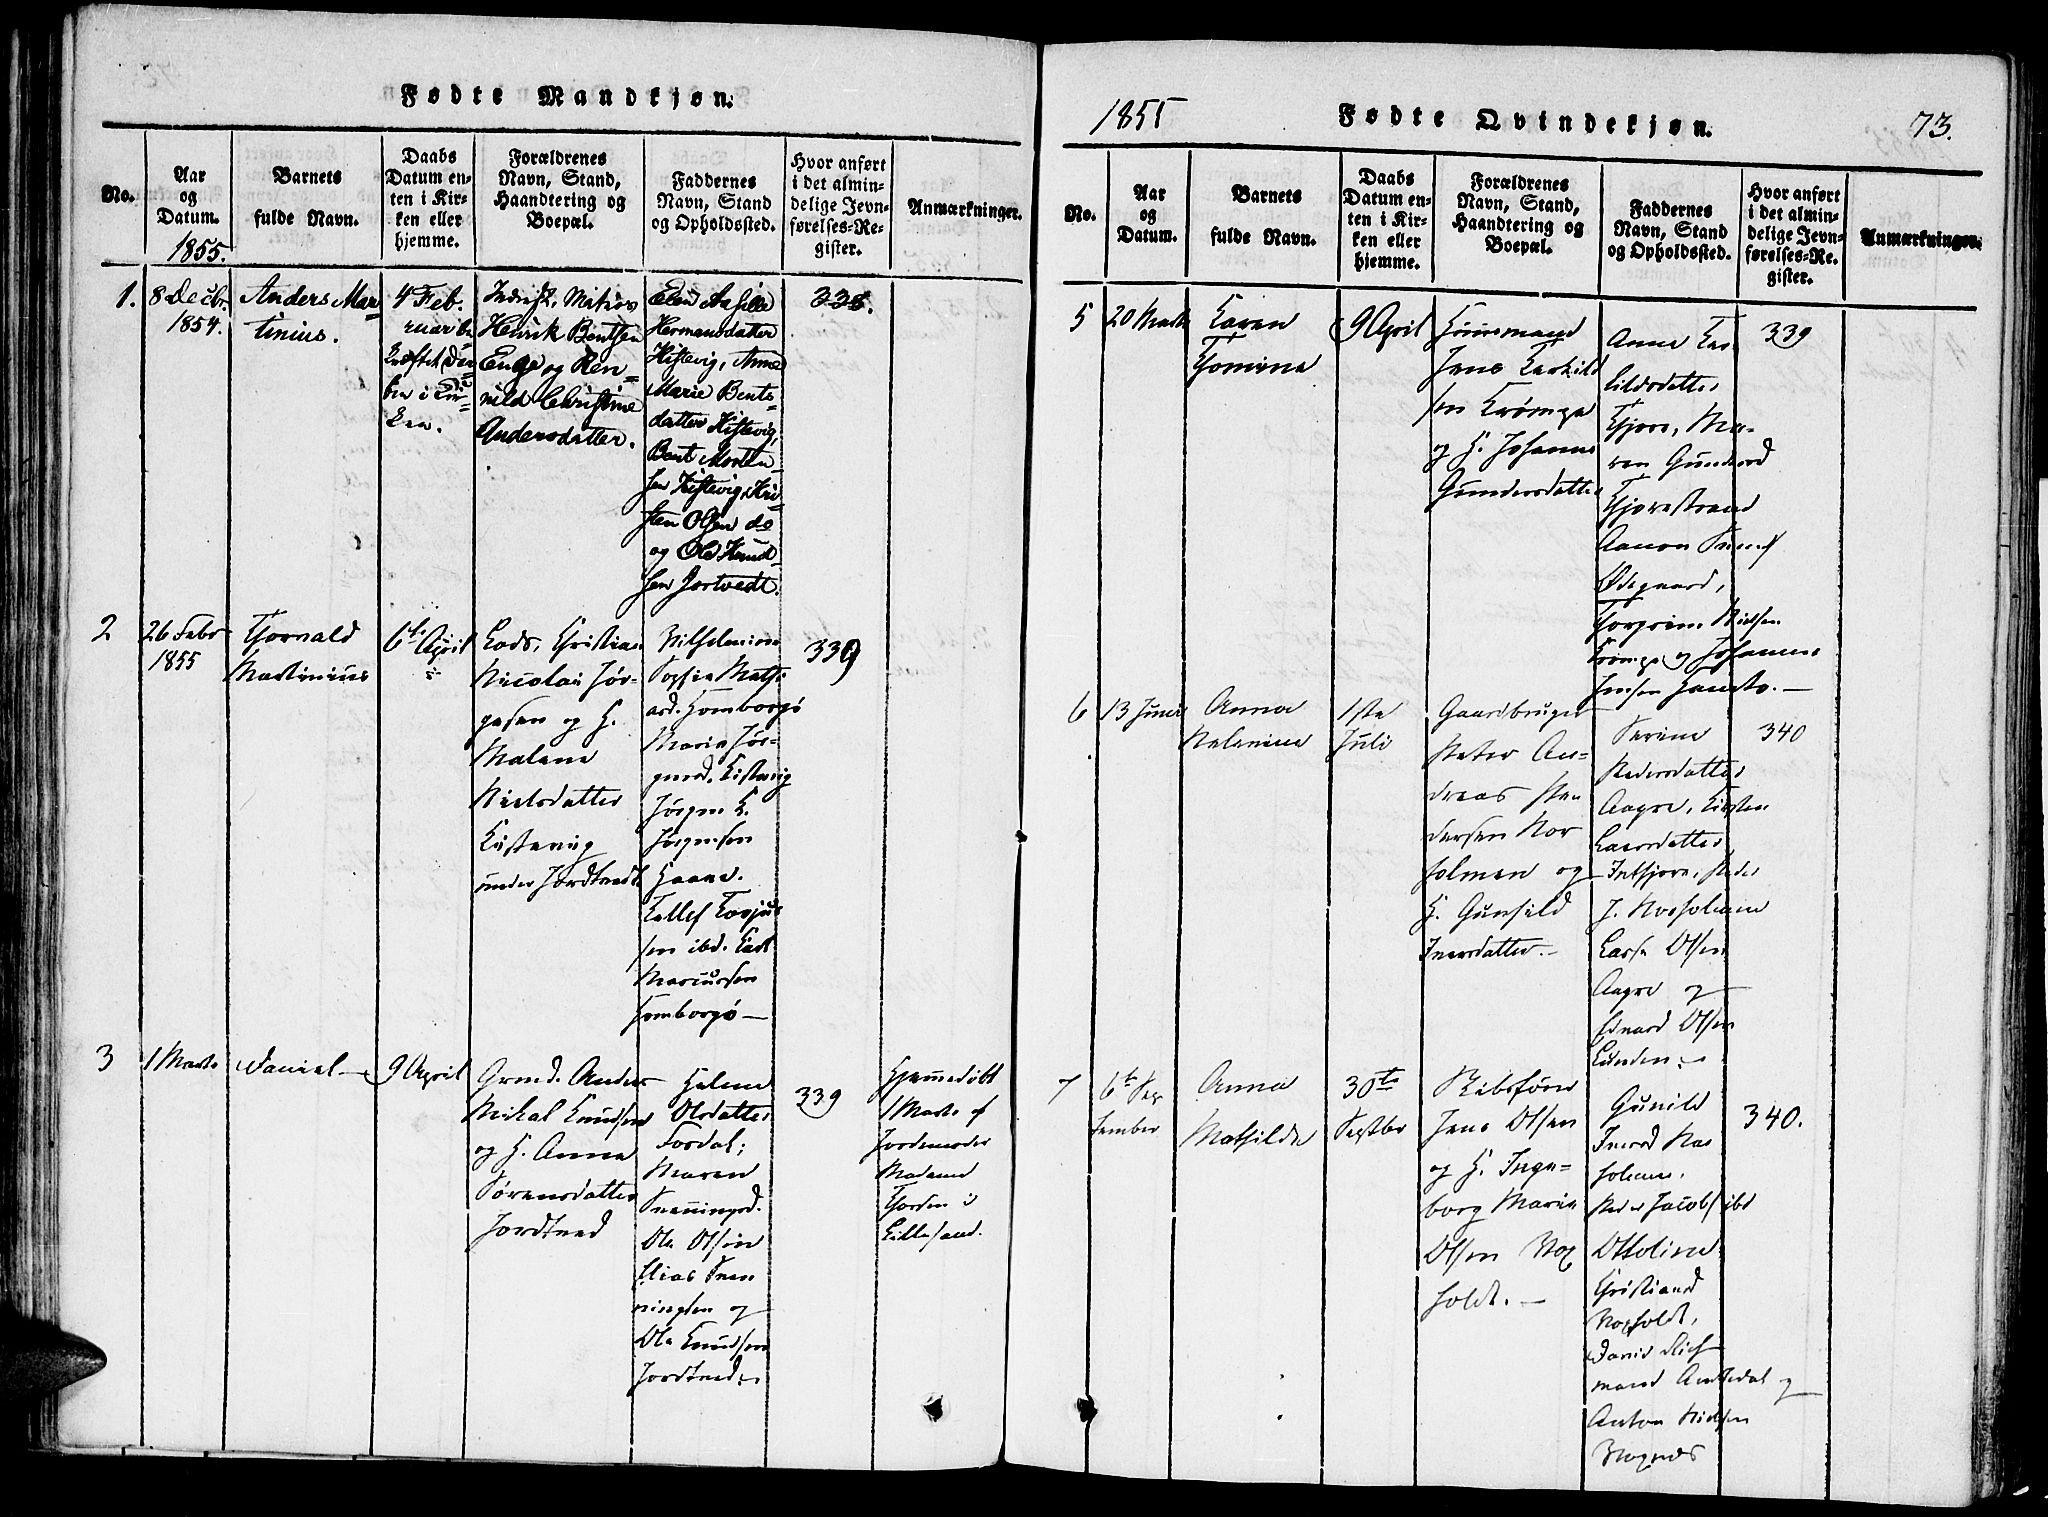 Fødte Mandkjøn.
No.
Aar
og
Datum.
1855.
Barnets
fulde Navn.
Daabs
Datum en-
ten i Kir-
ken eller
hjemme.
Forældrenes
Navn, Stand,
Haandtering og
Boepæl.
Faddernes
Navn, Stand
og Opholdssted.
Hvor anført
i det almin-
delige Jevn-
førelses-Re-
gister.
Anmærkninger.
1.
8 Decbr
1854.
Anders Mar-
tinius.
4 Feb.
ruar
i Kir-
ken.
Henrik Bentsen
Enge og Ren-
nild Christine
Andersdatter.
Elen Aasille
Hermansdatter
Kistevig, Anne
Marie Bents-
datter Kistevig,
Bent Morten-
sen Kistevig, Kri-
sten Olsen do
og Ole Knud-
sen Jortvedt.
338.
2
26 Febr
1855
Thorvald
Martinius
6te April
Lods, Christian
Nicolai Jør-
gesen og H.
Malene
Nielsdatter
Kistevig
under Jordtvedt
Vilhelmine
Sophie Maths
ard. Homborgø
Maria Jør-
gensd. Kistevig
Jørgen H.
Jørgensen
Haave.
Tellef Torjus
sen ibd. Carl
Marcussen
Homborgø —
339
3
1 Marts
Daniel —
9 April
Grmd. Anders
Mikal Knudsen
og H. Anne
Sørensdatter
Jordtved
Helene
Olsdatter
Fordal;
Maren
Svenningsd.
Ole Olsen
Elias Sven
ningsen og
Ole Knudsen
Jordtved.
339
Hjemmedøbt
1 Marts af
Jordemoder
Madame
Thorsen i
Lillesand.
1855
Fødte Qvindekjøn.
73.
No.
Aar
og
Datum.
Barnets
fulde Navn.
Daabs
Datum en-
ten i Kir-
ken eller
hjemme.
Forældrenes
Navn, Stand,
Haandtering og
Boepæl.
Faddernes
Navn, Stand
og Opholdssted.
Hvor anført
i det almin-
delige Jevn-
førelses-Re-
gister.
Anmærkninger.
5
20 Marts
Karen
Thomine
9 April
Huusmand
Jens Terkild
sen Krømpe
og H. Johanne
Gundersdatter
Anne Ter
kildsdatter
Tjore, Ma-
ren Gundersd
Tjorestrand
Aanon Svends
Ødegaard,
Thorgrim Nielsen
Krømpe og Johannes
Jensen
339
6
13 Juni
Anna
Helenine
1ste
Juli
Gaardbruger
Peder An-
dreas Pe
dersen Hor
holmen og
H. Gunhild
Iversdatter. —
Serine
Pedersdatter
Aagre, Kirsten
Larsdatter
Indtjore, Peder
J. Horholmen
Lars Olsen
Aagre og
Edvard Olsen
Lunden.
340
7
6te Sep
tember
Anna
Mathilde
30te
Septbr
Skibsfører
Jens Olsen
og H. Inge-
borg Marie
Olsen Nox
holdt. —
Gunild
Iversd Hor
holmen.
Peder Jacobs ibd
Ottoline
Christiansd
Noxholdt,
David Rich
mand Andkedal og
Anton Nielsen
340.